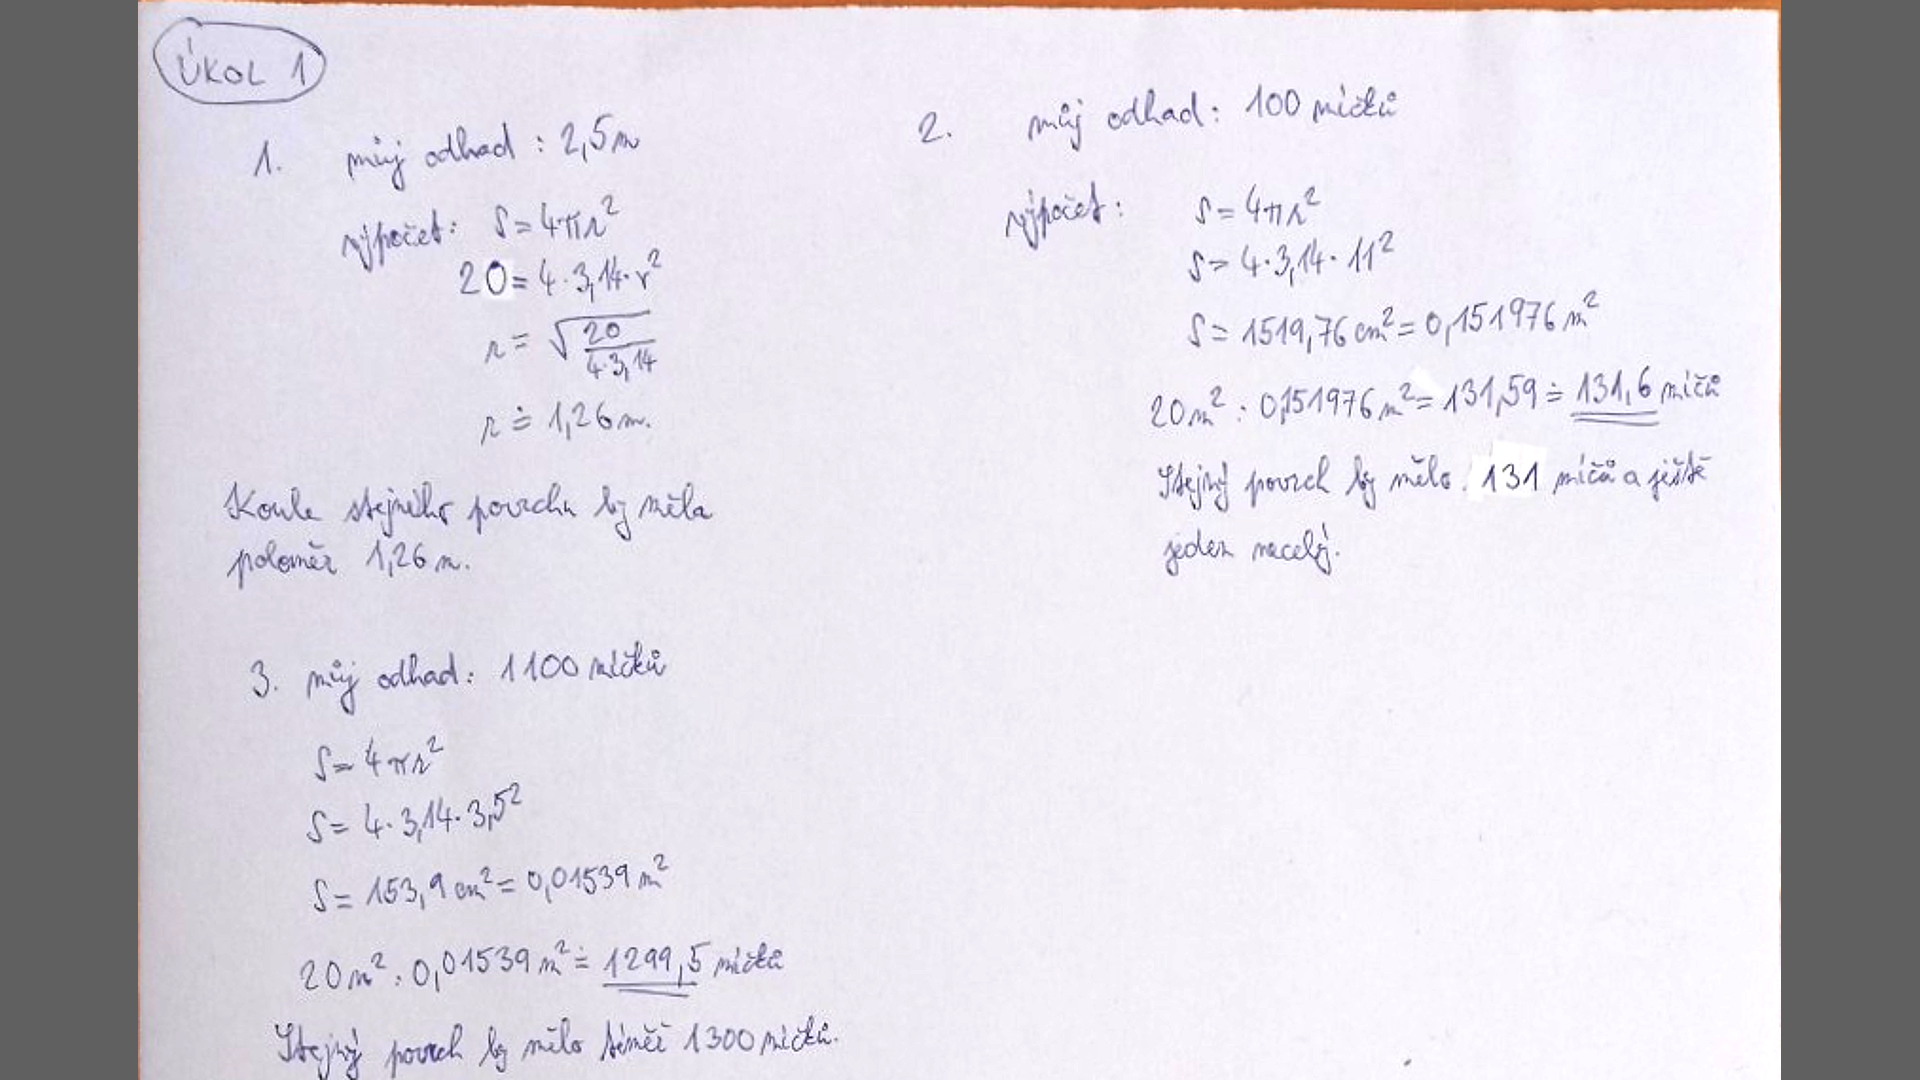 ÚKOL 1
1. můj odhad : 2,5m
výpočet: S = 4πr²
20 = 4·3,14·r²
r = √20/4·3,14
r ≐ 1,26 m.
Koule stejného povrchu by měla
poloměr 1,26 m.
2. můj odhad: 100 míčků
výpočet: S = 4πr²
S = 4·3,14·11²
S = 1519,76 cm² = 0,151976 m²
20 m² : 0,151976 m² = 131,59 ≐ 131,6 míčů
Stejný povrch by mělo 131 míčů a ještě
jeden necelý.
3. můj odhad: 1100 míčků
S = 4πr²
S = 4·3,14·3,5²
S = 153,9 cm² = 0,01539 m²
20 m² : 0,01539 m² ≐ 1299,5 míčků
Stejný povrch by mělo téměř 1300 míčků.